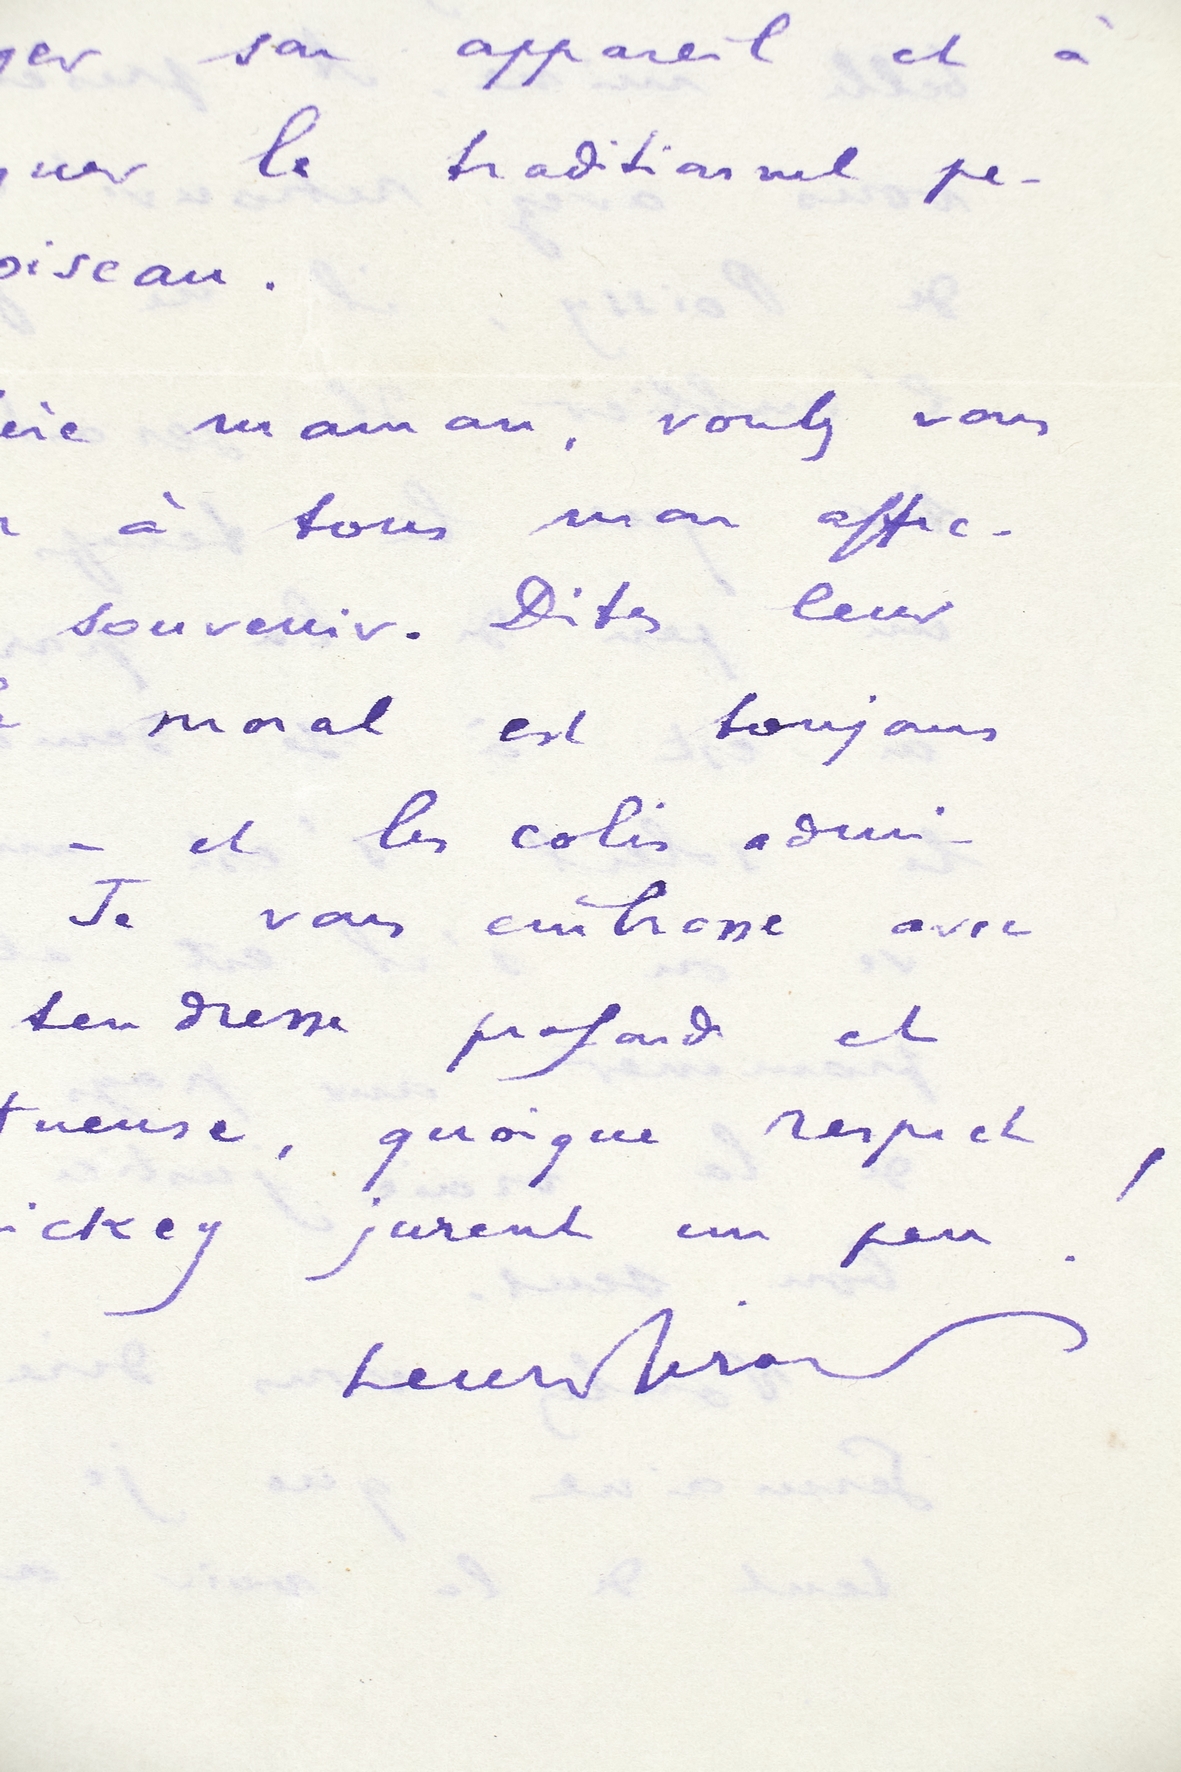 ger son appareil et à
quer le traditionnel pe-
oiseau.
ère maman, voulez vous
à tous mon affec-
souvenir. Dites leur
moral est toujours
- et les colis admi-
Je vous embrasse avec
tendresse profond et
tueuse, quoique respect
ickey jurent un peu !